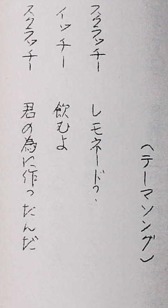 (テーマソング)
スクラッチー　レモネード?
イッチー　飲むよ
スクラッチー　君の為に作ったんだ